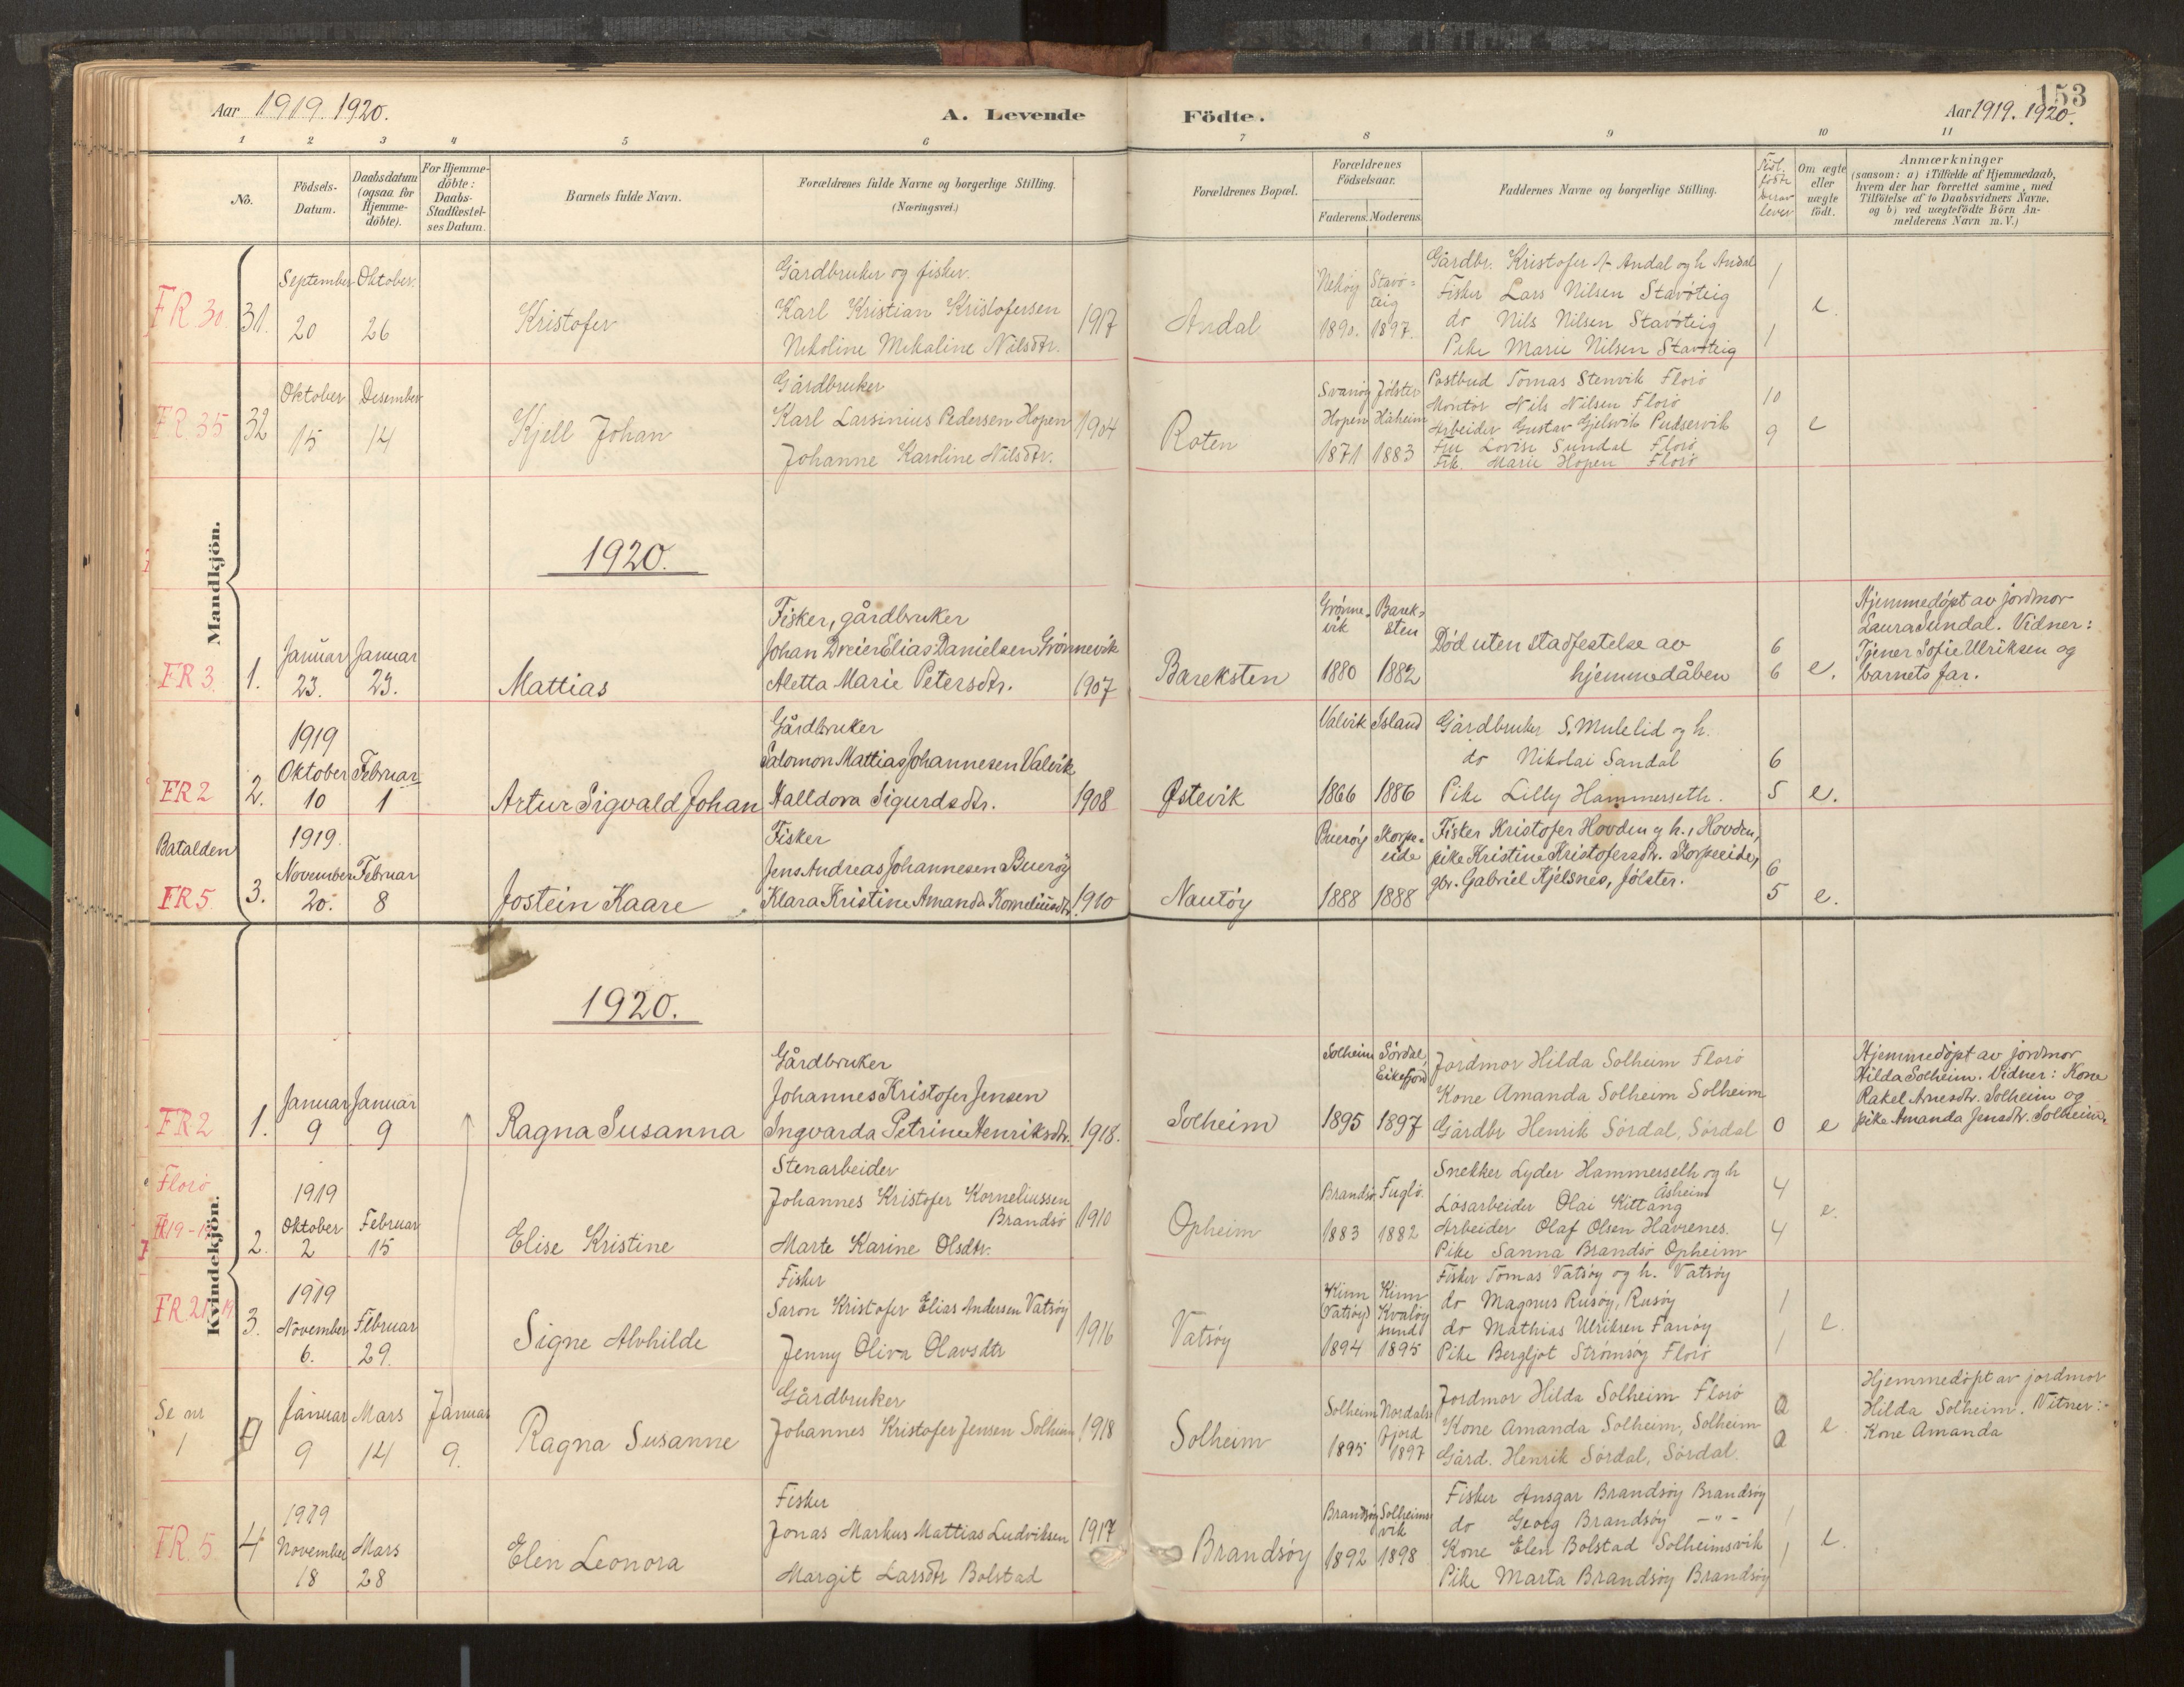 Aar 1919. 1920.
A. Levende
Födte.
153
Aar 1919. 1920.
1 2 3 4 5 6 7 8 9 10 11
No.
Födsels-
Datum.
Daabsdatum
(ogsaa for
Hjemme-
döbte).
For Hjemme-
döbte:
Daabs-
Stadfæstel-
ses Datum.
Barnets fulde Navn.
Forældrenes fulde Navne og borgerlige Stilling.
(Næringsvei.)
Forældrenes Bopæl.
Forældrenes
Födselsaar.
Faderens. Moderens.
Faddernes Navne og borgerlige Stilling.
Om ægte
eller
uægte
födt.
Anmærkninger
(saasom: a) i Tilfælde af Hjemmedaab,
hvem der har forrettet samme, med
Tilföielse af to Daabsvidners Navne,
og b) ved uægtefödte Börn An-
melderens Navn m. V.)
Mandkjön.
FR 30. 31.
September Oktober.
20 26
Kristofer
Gårdbruker og fisker.
Karl Kristian Kristofersen
Nikoline Mikaline Nilsdtr.
1917
Andal
Stavö-
teig
1890. 1897.
Gårdbr. Kristofer A Andal og h Andal
Fisker Lars Nilsen Stavöteig
do Nils Nilsen Stavöteig
Pike Marie Nilsen Stavöteig
1
1
e.
FR. 35 32
Oktober Desember
15 14
Kjell Johan
Gårdbruker
Karl Larsinius Pedersen Hopen
Johanne Karoline Nilsdtr.
1904
Roten
Svanöy Jölster
Hopen Håheim
1871 1883
Postbud Tomas Stenvik Florö
Montör Nils Nilsen Florö
Arbeider Gustav Gjelsvik Pudservik
Fru Lovise Sundal Florö
Frk. Marie Hopen Florö
10
9
e
1920.
FR 3. 1.
Januar Januar
23. 23.
Mattias
Fisker, gårdbruker
Johan Dreier Elias Danielsen Grönnevik
Aletta Marie Petersdtr.
1907
Bareksten
Grönne- Barek-
vik sten
1880 1882
Död uten stadfestelse av
hjemmedåben
6
6
e.
Hjemmedöpt av jordmor
Laura Sundal. Vidner:
Tjener Sofie Ulriksen og
barnets far.
FR 2 2.
1919
Oktober Februar
10 1
Artur Sigvald Johan
Gårdbruker
Salomon Mattias Johannesen Valvik
Halldora Sigurdsdtr.
1908
Östevik
Valvik Island
1866 1886
Gårdbruker S. Mulelid og h.
do Nikolai Sandal
Pike Lilly Hammerseth.
6
5
e.
Batalden
FR 5 3.
1919.
November Februar
20. 8
Jostein Kaare
Fisker
Jens Andreas Johannesen Bueröy
Klara Kristine Amanda Korneliusdtr.
1910
Nautöy
Bueröy Skorpe-
eide
1888 1888
Fisker Kristofer Hovden og h., Hovden,
pike Kristine Kristofersdtr. Skorpeeide,
gbr. Gabriel Kjelsnes, Jölster.
6
5
e.
Kvindekjön.
1920.
FR 2 1.
Januar Januar
9 9
Ragna Susanna
Gårdbruker
Johannes Kristofer Jensen
Ingvarda Petrine Henriksdtr.
1918.
Solheim
Solheim Sördal,
Eikefjord
1895 1897
Jordmor Hilda Solheim Florö
Kone Amanda Solheim Solheim
Gårdbr Henrik Sördal, Sördal
0
e
Hjemmedöpt av jordmor
Hilda Solheim. Vidner: Kone
Rakel Arnesdtr. Solheim og
pike Amanda Jensdtr. Solheim.
Florö
2.
1919
Oktober Februar
2 15
Elise Kristine
Stenarbeider
Johannes Kristofer Korneliussen
Brandsö
Marte Karine Olsdtr.
1910
Opheim
Brandsö Fuglö.
1883 1882
Snekker Lyder Hammerseth og h
Åsheim
Lösarbeider Olai Kittang
Arbeider Olaf Olsen Havrenes.
Pike Sanna Brandsö Opheim
4
4
e.
FR. 21 3.
1919
November Februar
6. 29.
Signe Alvhilde
Fisker
Saron Kristofer Elias Andersen Vatsöy
Jenny Oliva Olavsdtr
1916
Vatsöy
Kinn Kinn
Vatsöy Kvalöy
sund
1894 1895
Fisker Tomas Vatsöy og h. Vatsöy
do Magnus Rusöy, Rusöy
do Mathias Ulriksen Fanöy
Pike Bergljot Strömsöy Florö
1
1
e.
Se nr
1
Januar Mars Januar
9 14 9.
Ragna Susanne
Gårdbruker
Johannes Kristofer Jensen Solheim
1918
Solheim
Solheim Nordals-
fjord
1895 1897
Jordmor Hilda Solheim Florö
Kone Amanda Solheim, Solheim
Gård. Henrik Sördal, Sördal.
0
0
e
Hjemmedöpt av jordmor
Hilda Solheim. Vitner:
Kone Amanda
FR. 5 4
1919
November Mars
18 28
Elen Leonora
Fisker
Jonas Markus Mattias Ludviksen
Margit Larsdtr Bolstad
1917
Brandsöy
Brandsöy Solheims
vik
1892 1898
Fisker Ansgar Brandsöy Brandsöy
do Georg Brandsöy -"-
Kone Elen Bolstad Solheimsvik
Pike Marta Brandsöy Brandsöy
1
1
e.